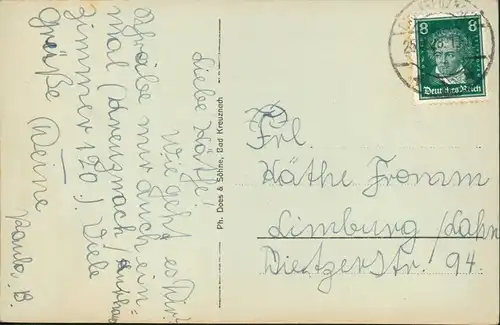 Liebe Käthe!
wie geht es Dir?
Schreibe mir doch ein=
mal (Kreuznach/Kurhaus
Zimmer 120.) Viele
Grüße Deine
Paula. B.
Ph. Dees & Söhne, Bad Kreuznach
8 8
Deutsches Reich
Frl.
Käthe Fromm
Limburg/Lahn
Diezerstr. 94.